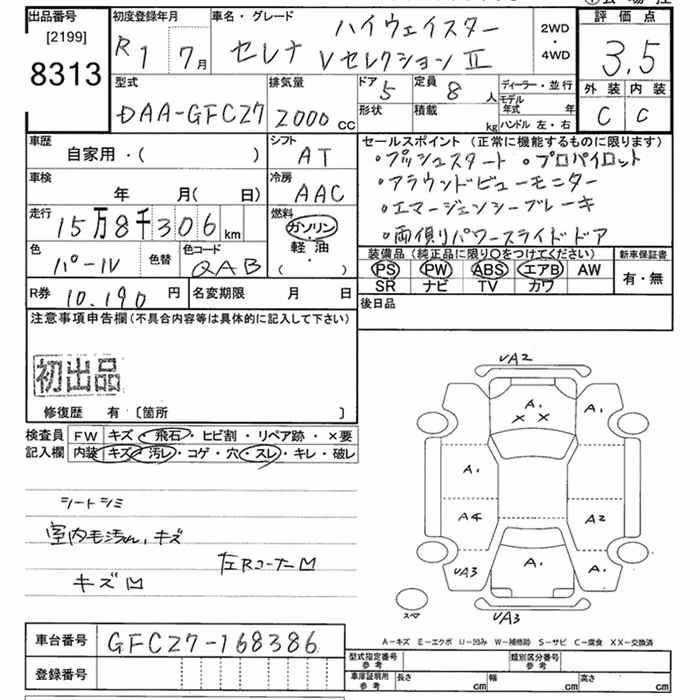 出品番号 初度登録年月 車名・グレード 評価点
[2199] ハイウェイスター 2WD
8313 R1 7月 セレナ Vセレクション II ・ 4WD 3.5
型式 排気量 ドア 5 定員 8人 ディーラー・並行 外装 内装
DAA-GFC27 2000cc 形状 積載 kg モデル年式 年 C C
ハンドル 左・右
車歴 シフト セールスポイント(正常に機能するものに限ります)
自家用・( ) AT ・プッシュスタート ・プロパイロット
車検 冷房 ・アラウンドビューモニター
年 月( 日) AAC ・エマージェンシーブレーキ
走行 燃料 ・両側リパワースライドドア
15万8千306km ガソリン
色 色替 色コード 軽油 装備品(純正品に限り○をつけてください) 新車保証書
パール QAB ( ) PS PW ABS エアB AW 有・無
SR ナビ TV カワ
R券 10,190円 名変期限 月 日 後日品
注意事項申告欄(不具合内容等は具体的に記入して下さい)
初出品
修復歴 有〔箇所 〕
検査員 FW キズ・飛石・ヒビ割・リペア跡・×要
記入欄 内装 キズ・汚レ・コゲ・穴・スレ・キレ・破レ
シートシミ
室内毛汚れ、キズ
左Rコーナー凹
キズ凹
UA2
A1 XX A1
A1
A4 A2
UA3 A1 A1
UA3
スペア
A－キズ E－エクボ U－凹み W－補修跡 S－サビ C－腐食 XX－交換済
車台番号 GFC27-168386
登録番号
型式指定番号 参考 類別区分番号 参考
車庫証明用 参考 長さ cm 幅 cm 高さ cm